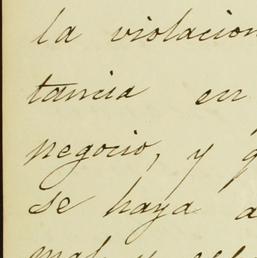 la violacion
tancia en
negocio, y
se haya a